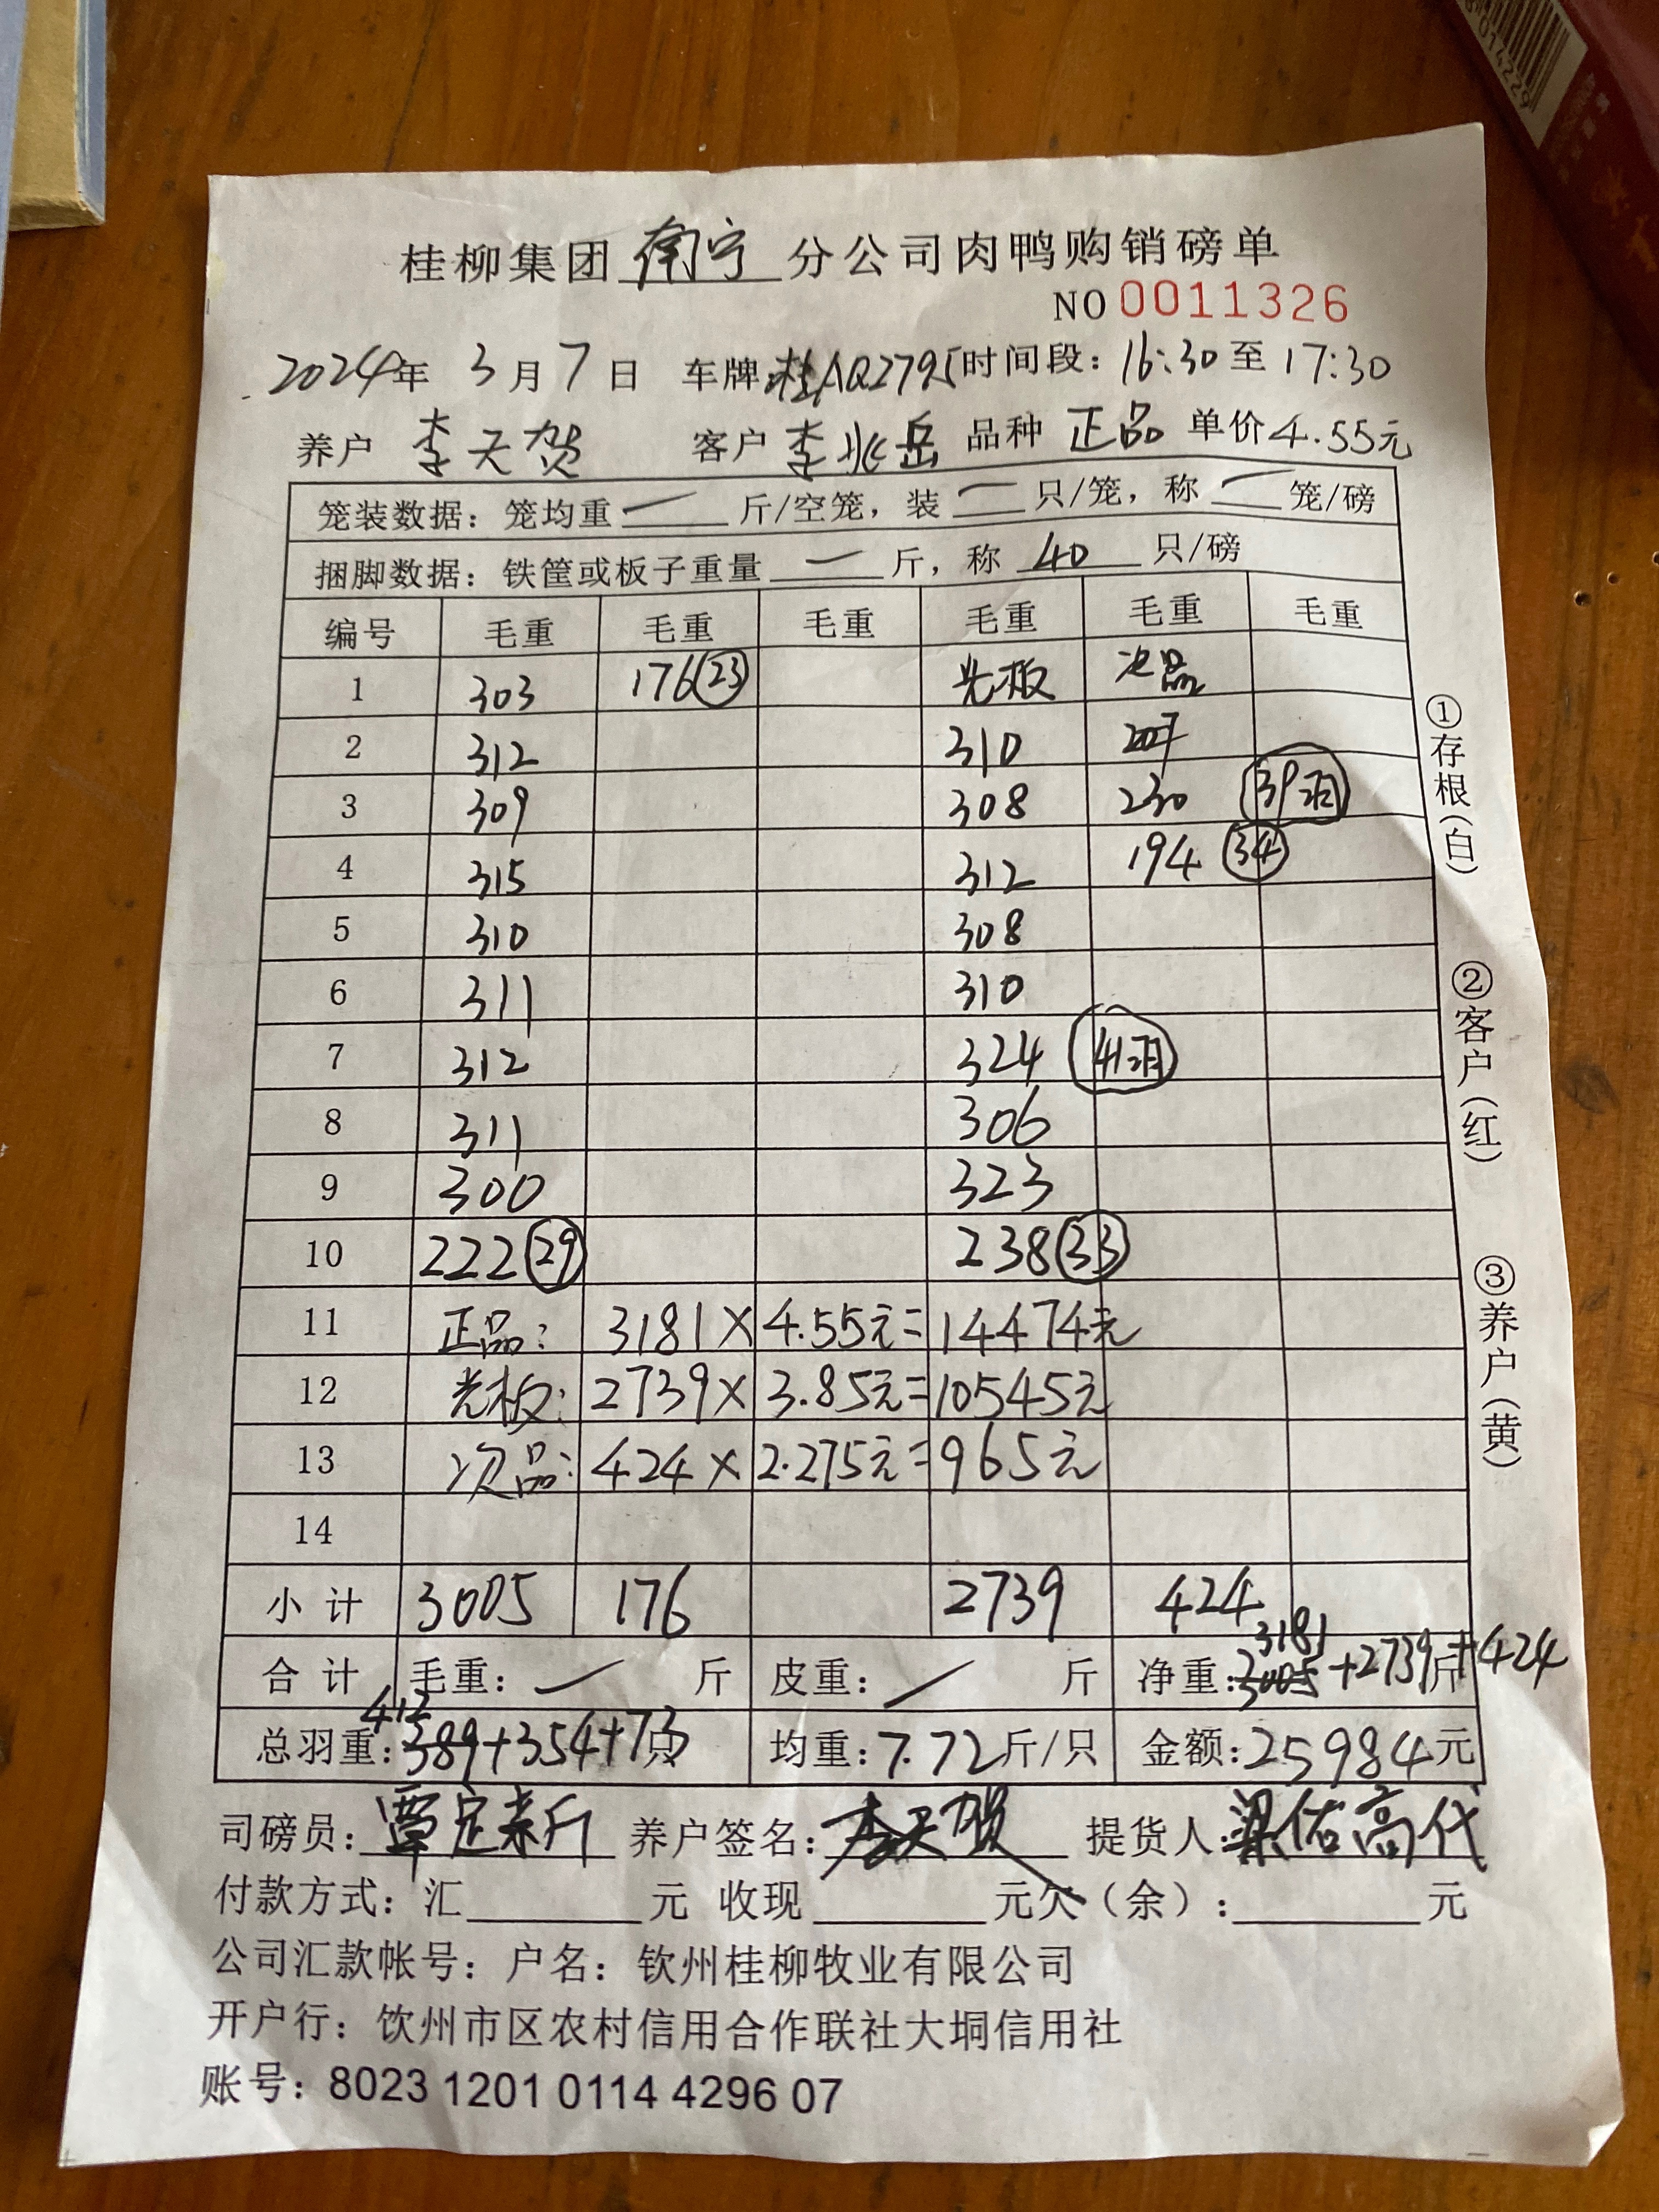 桂柳集团南宁分公司肉鸭购销磅单
NO 0011326
2024年 3月7日 车牌:桂AQ2795 时间段：16:30至17:30
养户 李天贺 客户 李兆岳 品种 正品 单价4.55元
笼装数据：笼均重 一 斤/空笼，装 一 只/笼，称 一 笼/磅
捆脚数据：铁筐或板子重量 一 斤，称 40 只/磅
编号 毛重 毛重 毛重 毛重 毛重 毛重
1 303 176 23 光板 次品
2 312 310
3 309 308 230 39羽
4 315 312 194 34
5 310 308
6 311 310
7 312 324 41羽
8 311 306
9 300 323
10 222 29 238 33
11 正品: 3181× 4.55元= 14474元
12 光板: 2739× 3.85元= 10545元
13 次品: 424× 2.275元= 965元
14
小计 3005 176 2739 424
合计 毛重： / 斤 皮重： / 斤 净重: 3181+2739斤+424
总羽重: 412 389+354+73只 均重: 7.72斤/只 金额: 25984元
司磅员： 养户签名: 李天贺 提货人: 梁佑高代
付款方式：汇 元 收现 元欠（余）: 元
公司汇款帐号：户名：钦州桂柳牧业有限公司
开户行：饮州市区农村信用合作联社大垌信用社
账号：8023 1201 0114 4296 07
①存根(白)
②客户(红)
③养户(黄)